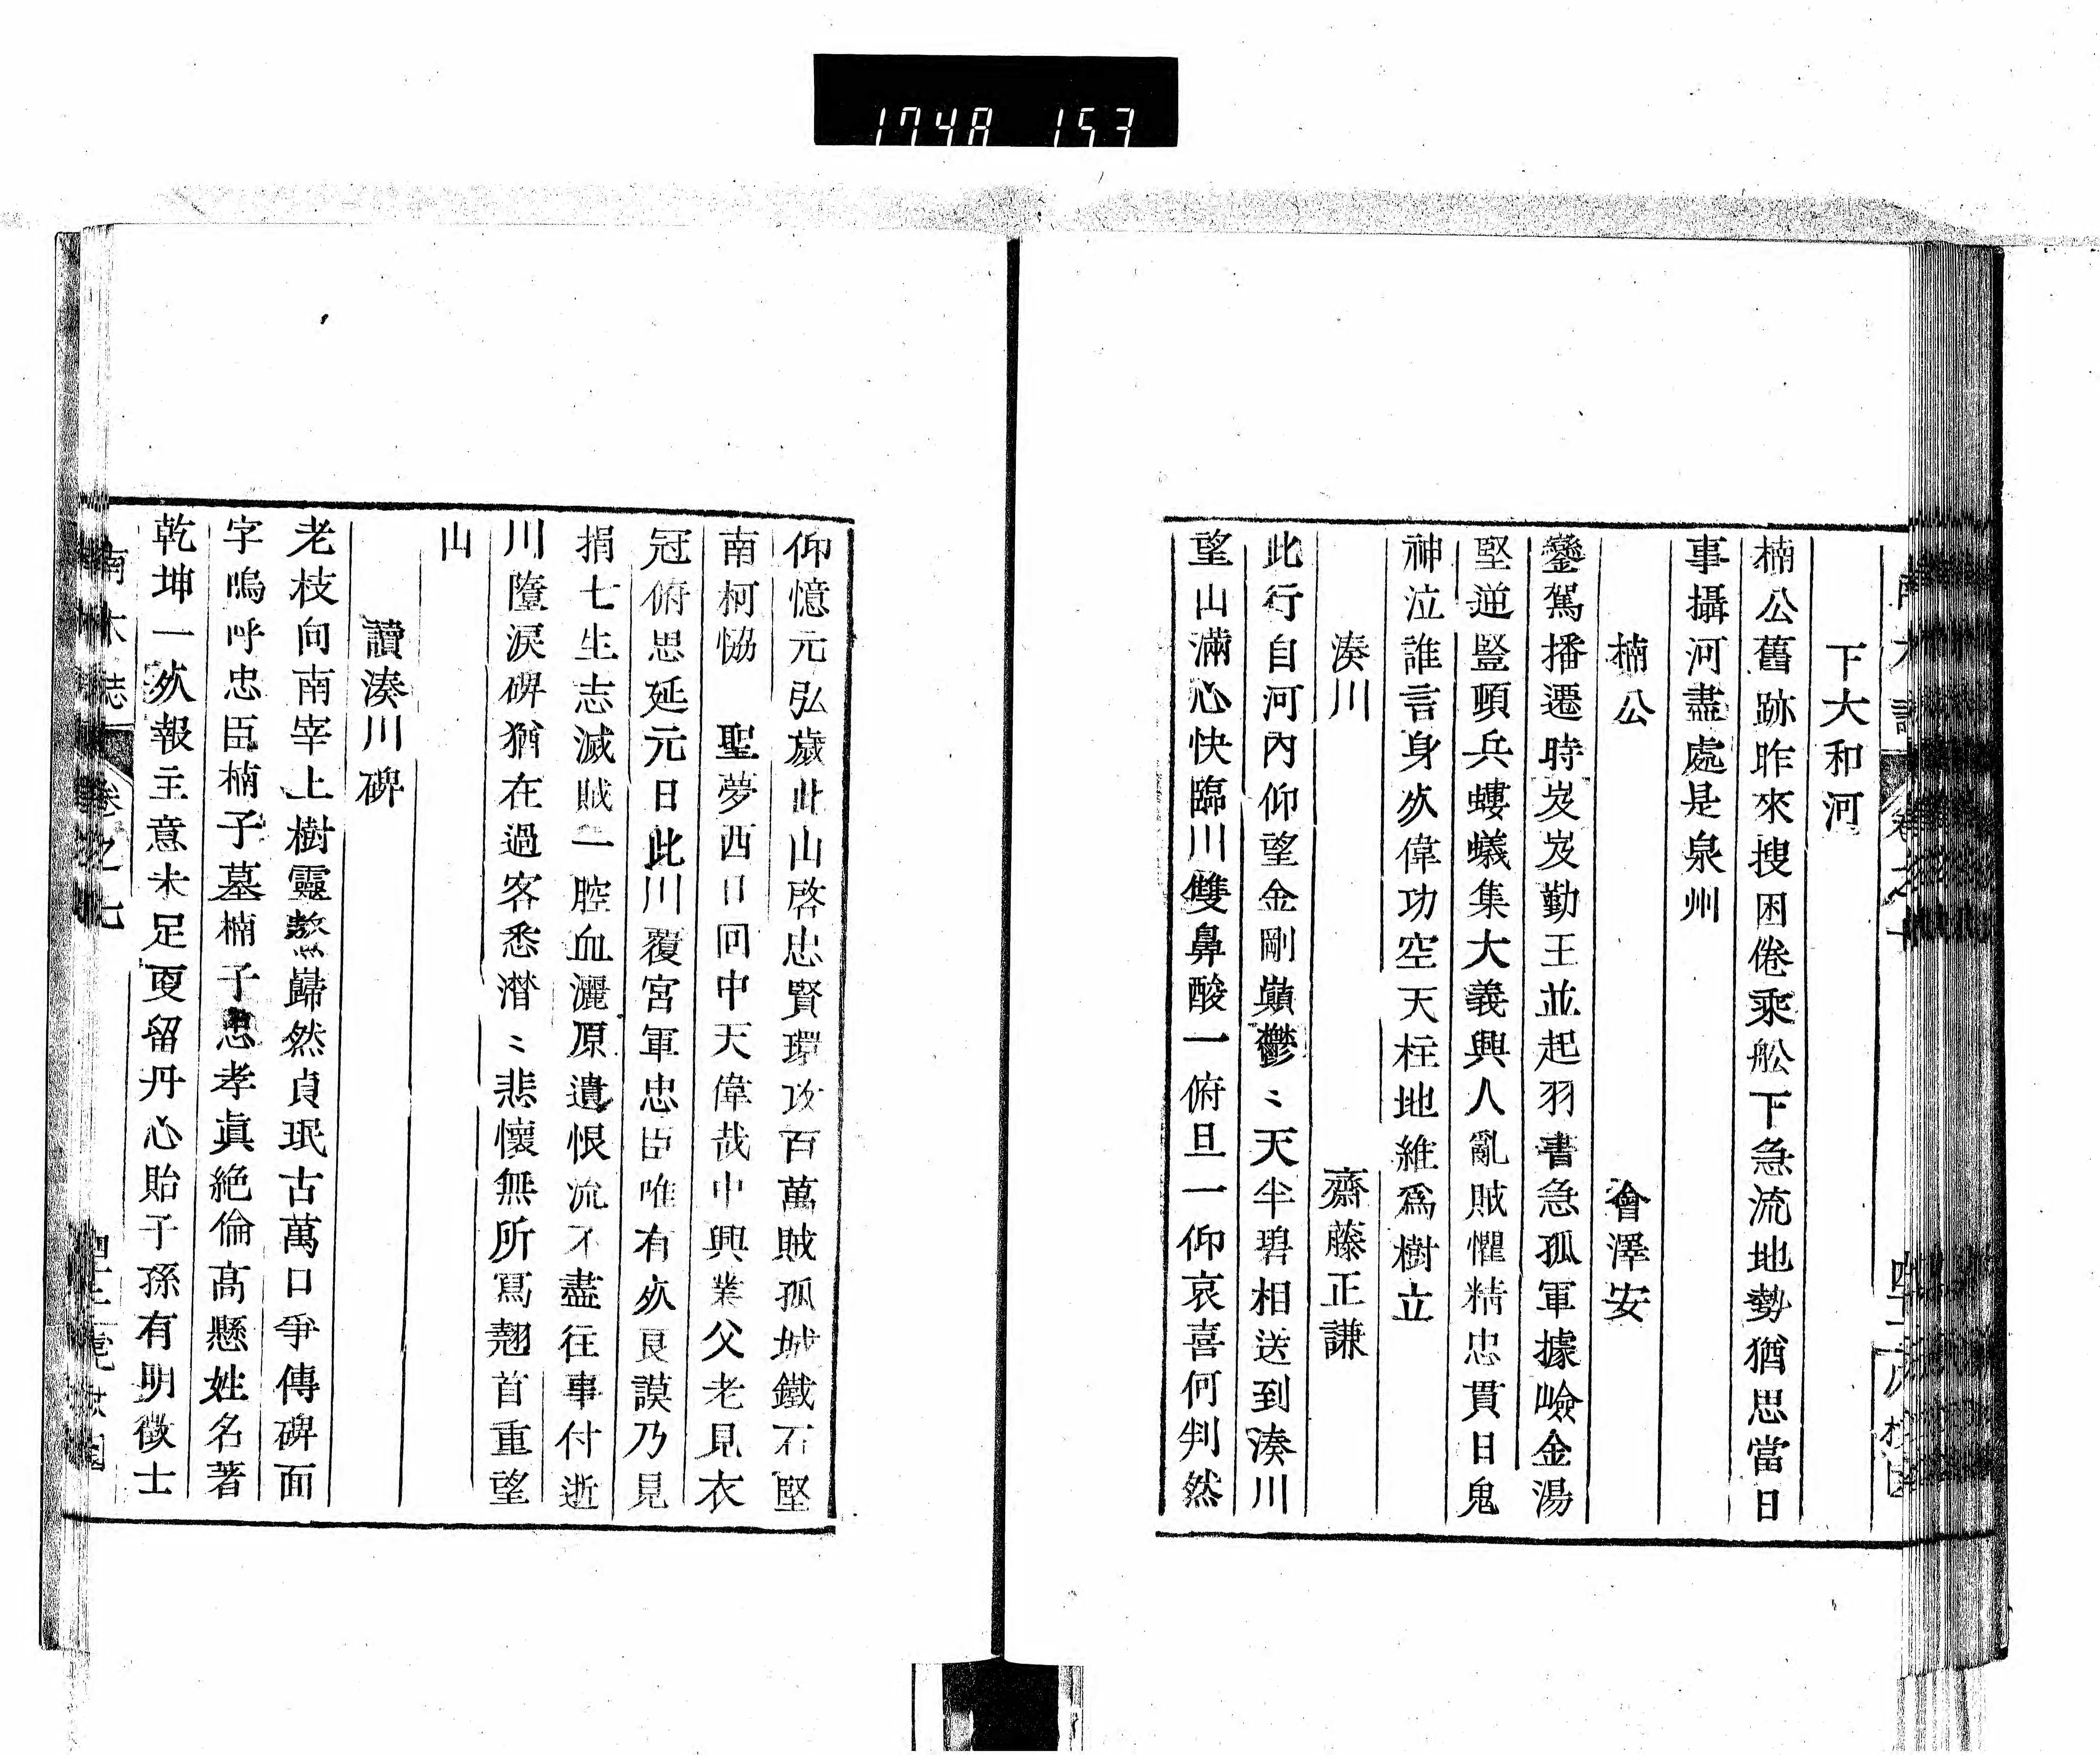 1748 153
下大和河
楠公舊跡昨來搜困倦乘舩下急流地勢猶思當日
事攝河盡處是泉州
楠公 會澤安
鑾駕播遷時岌岌勤王並起羽書急孤軍據嶮金湯
堅逆豎頓兵螻蟻集大義興人亂賊懼精忠貫日鬼
神泣誰言身㱦偉功空天柱地維爲樹立
湊川 齋藤正謙
此行自河內仰望金剛巔鬱〻天半碧相送到湊川
望山滿心快臨川雙鼻酸一俯旦一仰哀喜何判然
仰憶元弘歲此山啓忠賢環攻百萬賊孤城鐵石堅
南柯恊 聖夢西日回中天偉哉中興業父老見衣
冠俯思延元日此川覆宮軍忠臣唯有㱦良謨乃見
捐七生志滅賊一腔血灑原遺恨流不盡往事付逝
川墮淚碑猶在過客悉潸〻悲懷無所寫翹首重望
山
讀湊川碑
老枝向南宰上樹靈鼇巋然貞珉古萬口爭傳碑面
字嗚呼忠臣楠子墓楠子忠孝眞絕倫高懸姓名著
乾坤一㱦報主意未足更留丹心貽子孫有明徵士
南木誌 卷之七